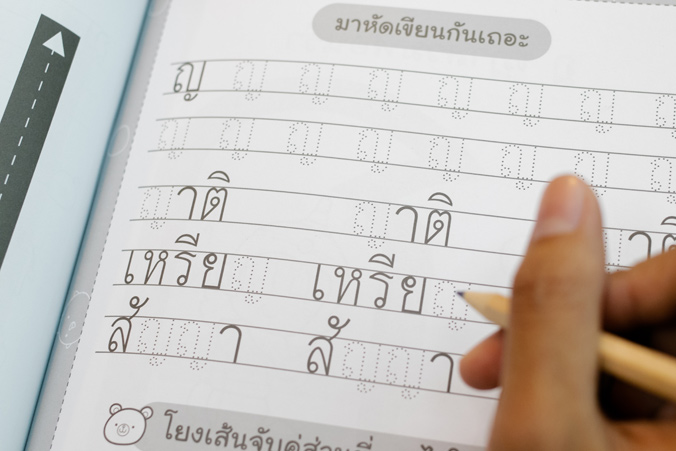 มาหัดเขียนกันเถอะ
ญ ญ ญ ญ ญ ญ ญ ญ
ญ ญ ญ ญ ญ ญ ญ ญ
ญาติ ญาติ
เหรียญ เหรียญ
สัญญา สัญญา
โยงเส้นจับคู่